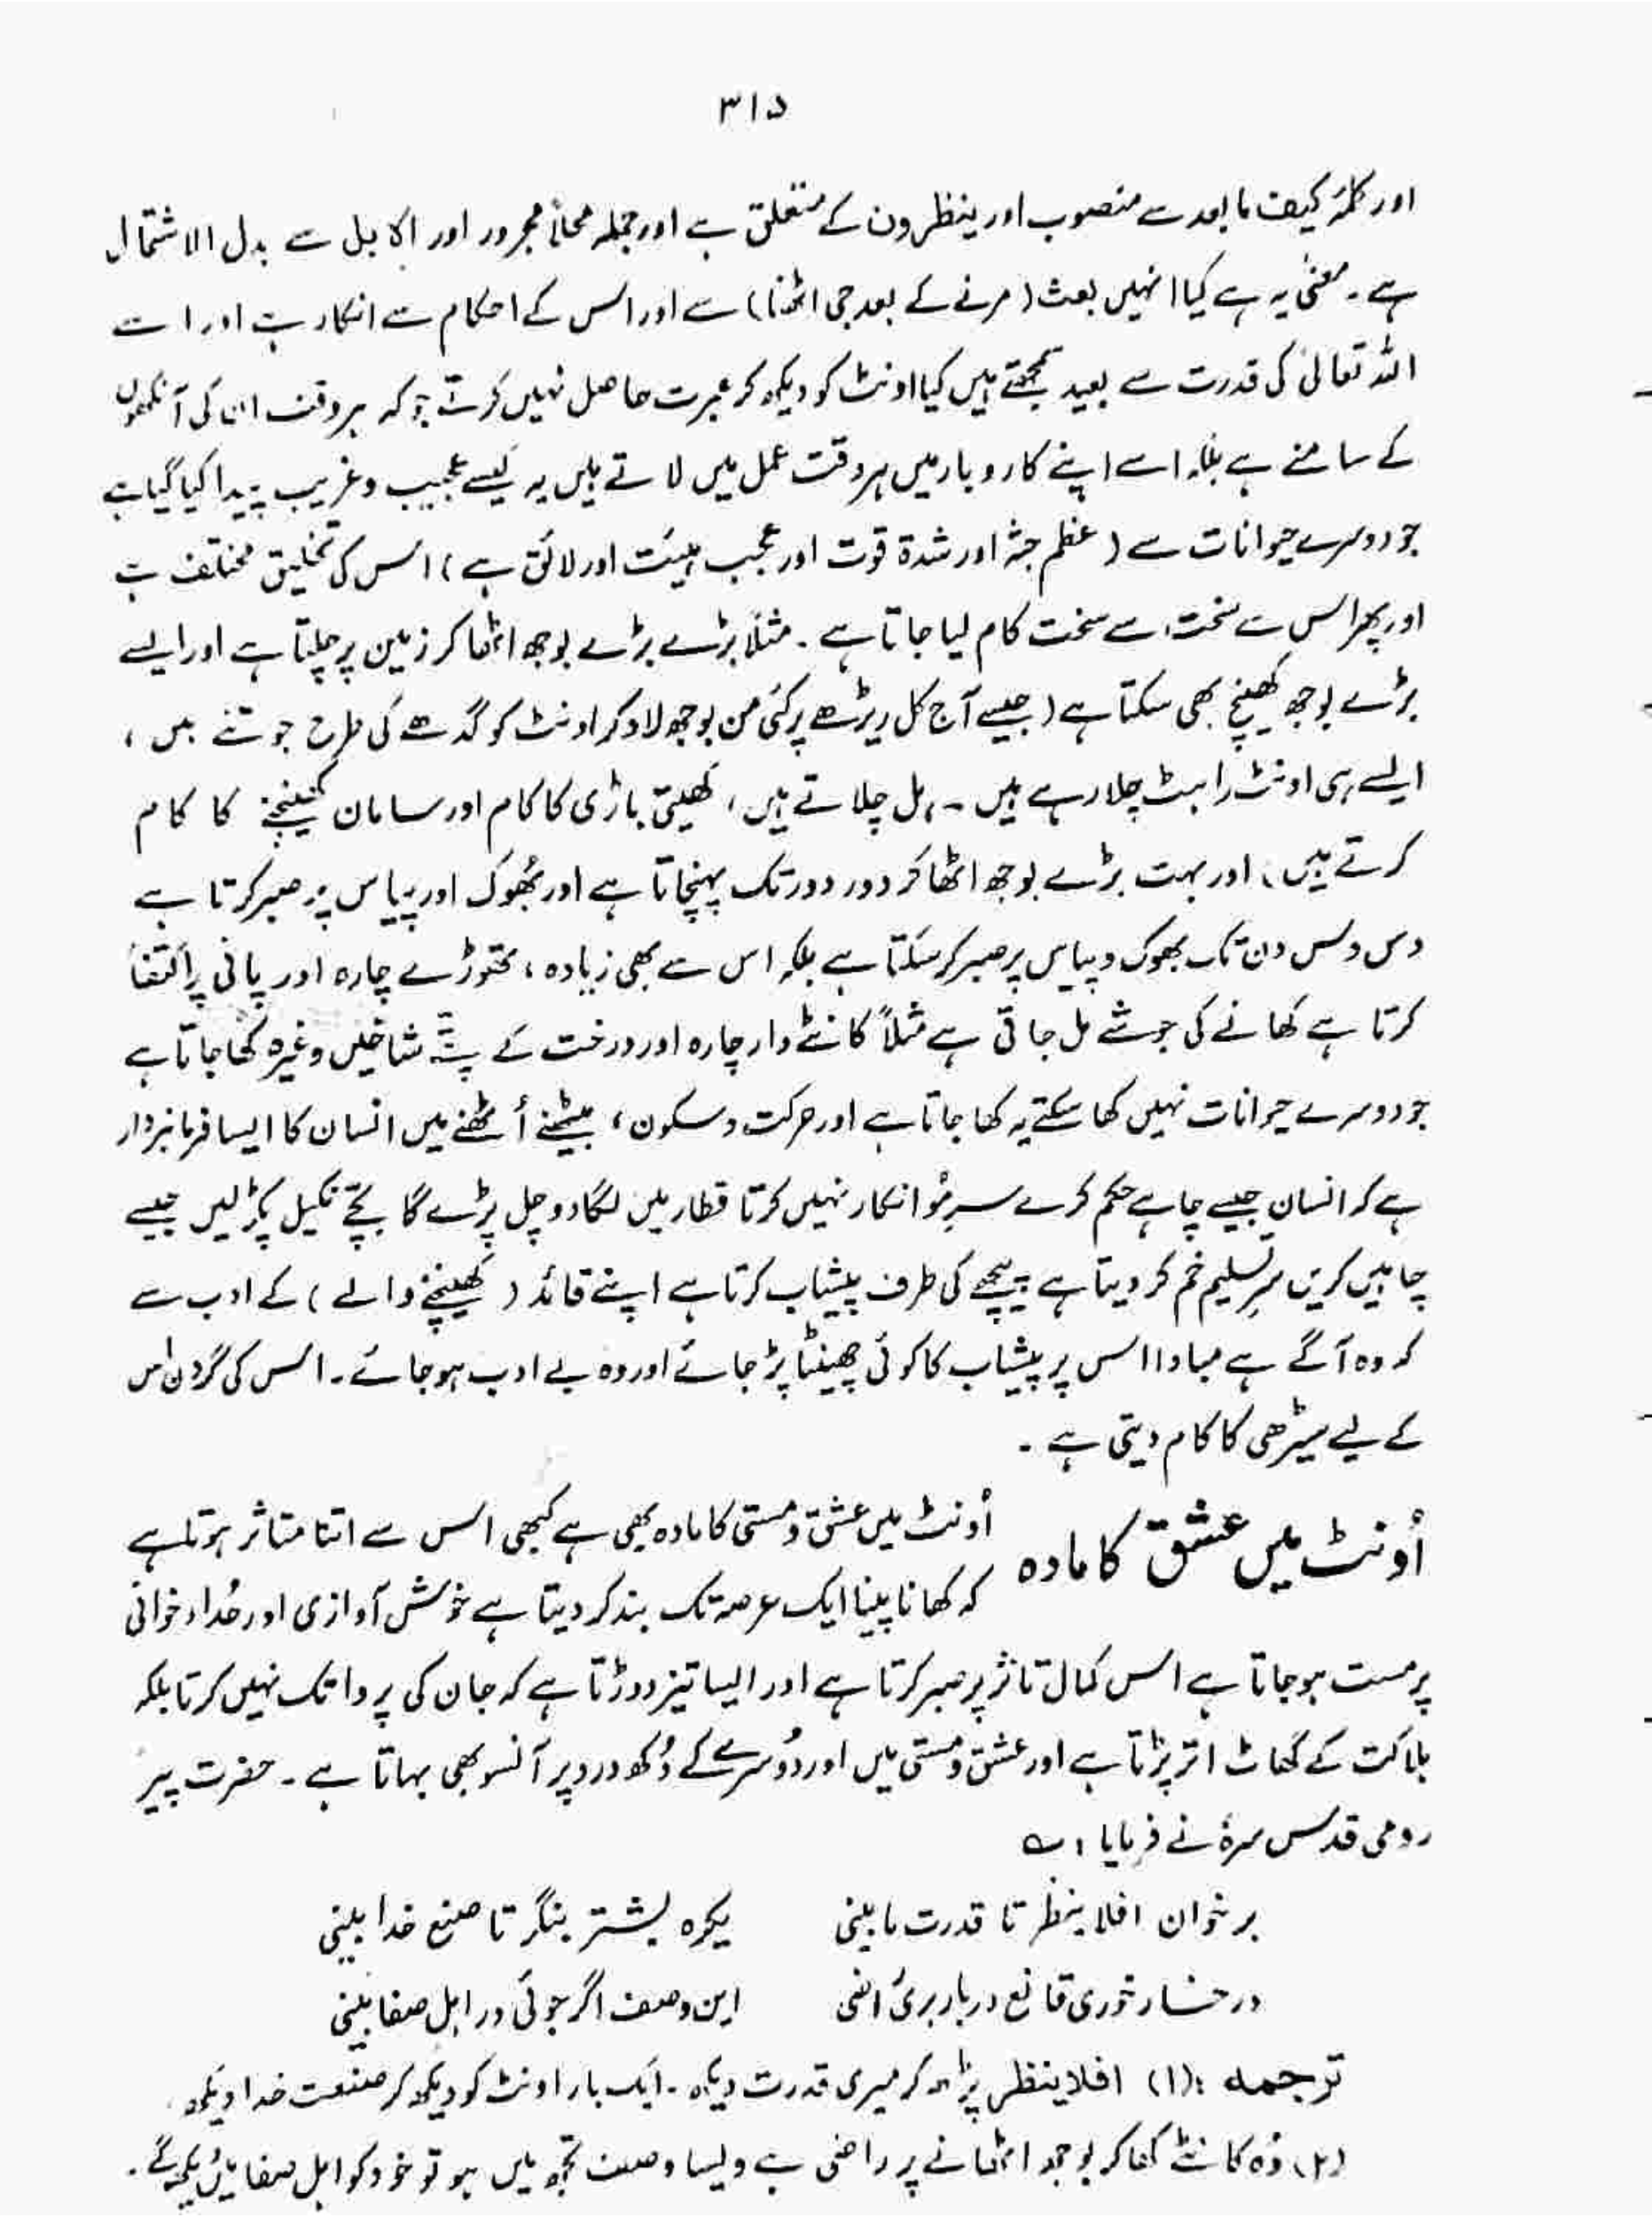 ۳۱۵
اور کلمۂ کیف مابعد سے منصوب اور ینظرون کے متعلق ہے اور جملہ محلاً مجرور اور الابل سے بدل الاشتمال
ہے۔ معنیٰ یہ ہے کیا انہیں بعث (مرنے کے بعد جی اٹھنا) سے اور اس کے احکام سے انکار ہے اور اسے
اللہ تعالیٰ کی قدرت سے بعید سمجھتے ہیں کیا اونٹ کو دیکھ کر عبرت حاصل نہیں کرتے جو کہ ہر وقت ان کی آنکھوں
کے سامنے ہے بلکہ اسے اپنے کاروبار میں ہر وقت عمل میں لاتے ہیں یہ کیسے عجیب و غریب پیدا کیا گیا ہے
جو دوسرے حیوانات سے (عظم جثہ اور شدۃ قوت اور عجب ہیئت اور لائق ہے) اس کی تخلیق مختلف ہے
اور پھر اس سے سخت سے سخت کام لیا جاتا ہے۔ مثلاً بڑے بڑے بوجھ اٹھا کر زمین پر چلتا ہے اور ایسے
بڑے بوجھ کھینچ بھی سکتا ہے (جیسے آج کل ریڑھے پر کئی من بوجھ لاد کر اونٹ کو گدھے کی طرح جوتتے ہیں،
ایسے ہی اونٹ راہٹ چلا رہے ہیں۔ ہل چلاتے ہیں، کھیتی باڑی کا کام اور سامان کھینچنے کا کام
کرتے ہیں، اور بہت بڑے بوجھ اٹھا کر دور دور تک پہنچاتا ہے اور بھُوک اور پیاس پر صبر کرتا ہے
دس دس دن تک بھوک و پیاس پر صبر کر سکتا ہے بلکہ اس سے بھی زیادہ، تھوڑے چارہ اور پانی پر اکتفا
کرتا ہے کھانے کی جو شے مل جاتی ہے مثلاً کانٹے دار چارہ اور درخت کے پتّے شاخیں وغیرہ کھا جاتا ہے
جو دوسرے حیوانات نہیں کھا سکتے یہ کھا جاتا ہے اور حرکت و سکون، بیٹھنے اُٹھنے میں انسان کا ایسا فرمانبردار
ہے کہ انسان جیسے چاہے حکم کرے سرِمُو انکار نہیں کرتا قطار میں لگا دو چل پڑے گا بچّے نکیل پکڑ لیں جیسے
چاہیں کریں سرِ تسلیم خم کر دیتا ہے پیچھے کی طرف پیشاب کرتا ہے اپنے قائد (کھینچنے والے) کے ادب سے
کہ وہ آگے ہے مبادا اس پر پیشاب کا کوئی چھینٹا پڑ جائے اور وہ بے ادب ہو جائے۔ اس کی گردن اس
کے لیے سیڑھی کا کام دیتی ہے۔
اُونٹ میں عشق کا مادہ اُونٹ میں عشق و مستی کا مادہ بھی ہے کبھی اس سے اتنا متاثر ہوتا ہے
کہ کھانا پینا ایک عرصہ تک بند کر دیتا ہے خوش آوازی اور حُداء خوانی
پر مست ہو جاتا ہے اس کمال تاثر پر صبر کرتا ہے اور ایسا تیز دوڑتا ہے کہ جان کی پروا تک نہیں کرتا بلکہ
ہلاکت کے گھاٹ اتر پڑتا ہے اور عشق و مستی میں اور دُوسرے کے دُکھ درد پر آنسو بھی بہاتا ہے۔ حضرت پیر
رومی قدس سرہٗ نے فرمایا ؎
بر خوان افلا ینظر تا قدرت ما بینی یکرہ بشتر بنگر تا صنع خدا بینی
در خار خوری قانع در بار بری راضی این وصف اگر جوئی در اہل صفا بینی
ترجمہ: (۱) افلا ینظر پڑھ کر میری قدرت دیکھ۔ ایک بار اونٹ کو دیکھ کر صنعت خدا دیکھ۔
(۲) وُہ کانٹے کھا کر بوجھ اٹھانے پر راضی ہے ویسا وصف تجھ میں ہو تو خود کو اہل صفا میں دیکھو گے۔